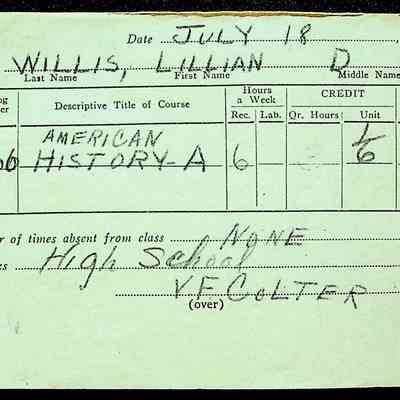 Date JULY 18
WILLIS, LILLIAN D
Last Name First Name Middle Name
Descriptive Title of Course Hours a Week CREDIT
Rec. Lab. Qr. Hours Unit
AMERICAN
HISTORY-A 6 1/6
of times absent from class NONE
High School
V F COLTER
(over)